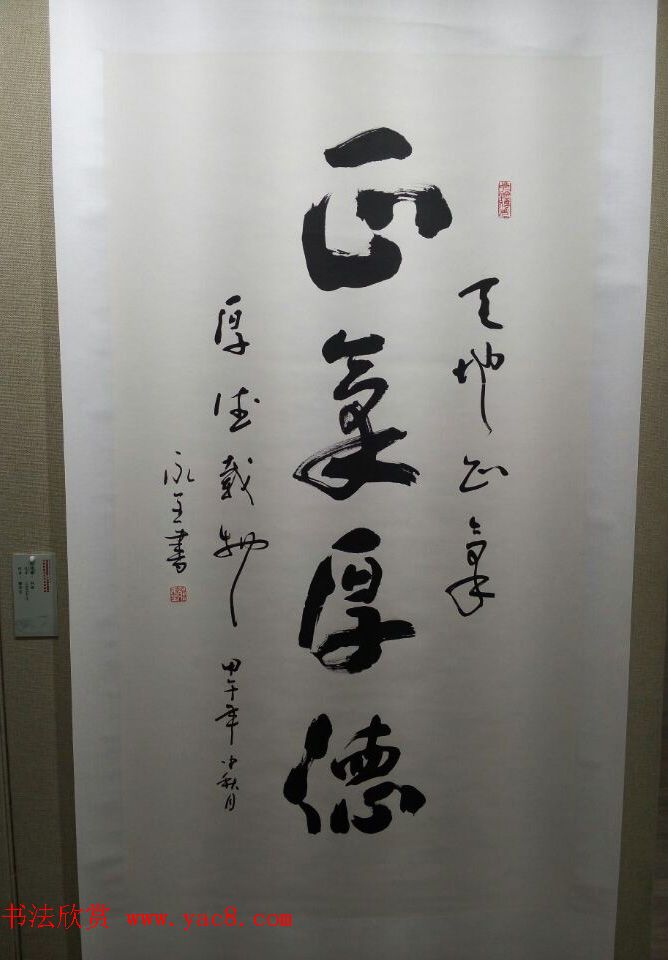 天地正氣
正氣厚德
厚德載物
甲午年中秋月
永主書
书法欣赏 www.yac8.com